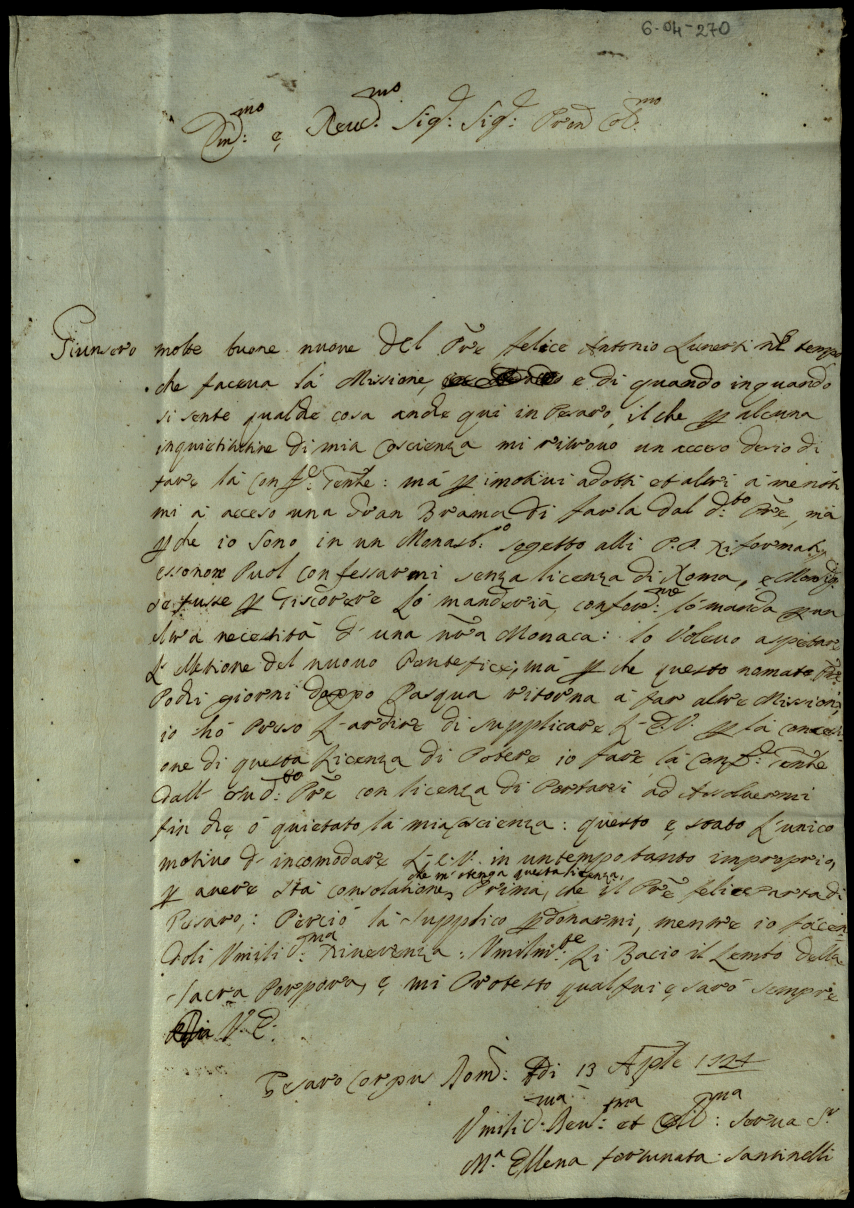 6-04-270
Em:mo e Reve:mo Sig: Sig: Pron Col:mo
Giunsero molte buone nuove del Pre felice Antonio Lunerti nel tempo
che faceua la Missione, e di quando inquando
si sente qualche cosa anche qui in Pesaro, il che p alcuna
inquietitudine di mia coscienza mi ritrouo un acceso desio di
fare la Conf: Gente: mà p i motiui adotti et altri à me noti
mi à acceso una Gran Brama di farla dal d:to Pre, mà
p che io sono in un Monast:o sogetto alli P.P. Riformati,
essonon Puol confessarmi senza licenza di Roma, e Mons:
se fusse p discorere lo manderia, confor:me lo manda p una
altra necessità d' una nra Monaca: Io Voleuo aspetare
L' elletione del nuouo Pontefice, mà p che questo nomato Pre
Pochi giorni doppo Pasqua ritorna à far altre Missioni,
io hò Preso L'ardire di supplicare L'E.V. p la concessi-
one di questa Licenza di Potere io fare la Conf: Gente
dall sud:to Pre con licenza di Portarsi ad Assoluermi
fin che ò quietato la mia coscienza: questo e stato L'unico
motiuo d' incomodare L'E.V. in un tempo tanto improprio,
p auere sta consolatione, che m'otenga questa licenza, Prima, che il Pre felice parta di
Pesaro,: Perciò la Supplico pdonarmi, mentre io facen-
doli Umili:ma Riuerenza: Umilm:te Li Bacio il Lembo della
Sacra Porpora, e mi Protesto qual fui e sarò sempre
V.E:
Pesaro Corpus Dom: Adi 13 Aple 1724
Umilis:ma Deu:ma et Obl:ma serua Sr
M.a Ellena fortunata Santinelli